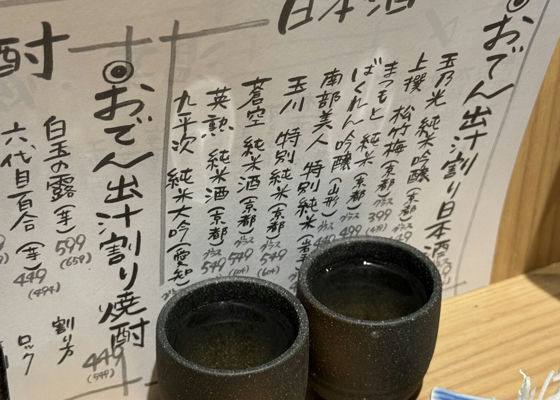 日本酒
◎おでん出汁割り日本酒
玉乃光 純米吟醸
上撰 松竹梅(京都)グラス
まつもと 純米(京都)グラス 399
ばくれん 吟醸(山形)グラス 499
南部美人 特別純米
玉川 特別純米(京都)グラス 549
蒼空 純米酒(京都)グラス 549
英勲 純米酒(京都)グラス 549
九平次 純米大吟(愛知)
酎
◎おでん出汁割り焼酎 449
白玉の露(芋)599(659)
六代目百合(芋)449(494)
割り方
ロック